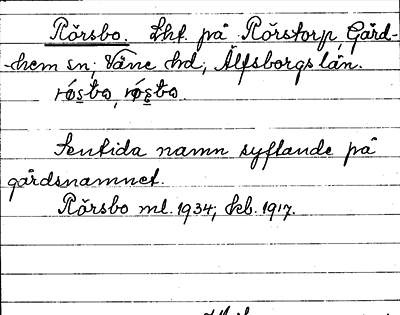 Rörsbo. Lht. på Rörstorp, Gärd-
hem sn; Väne hd; Älfsborgs län.
Sentida namn syftande på
gårdsnamnet.
Rörsbo ml. 1934; kb. 1917.